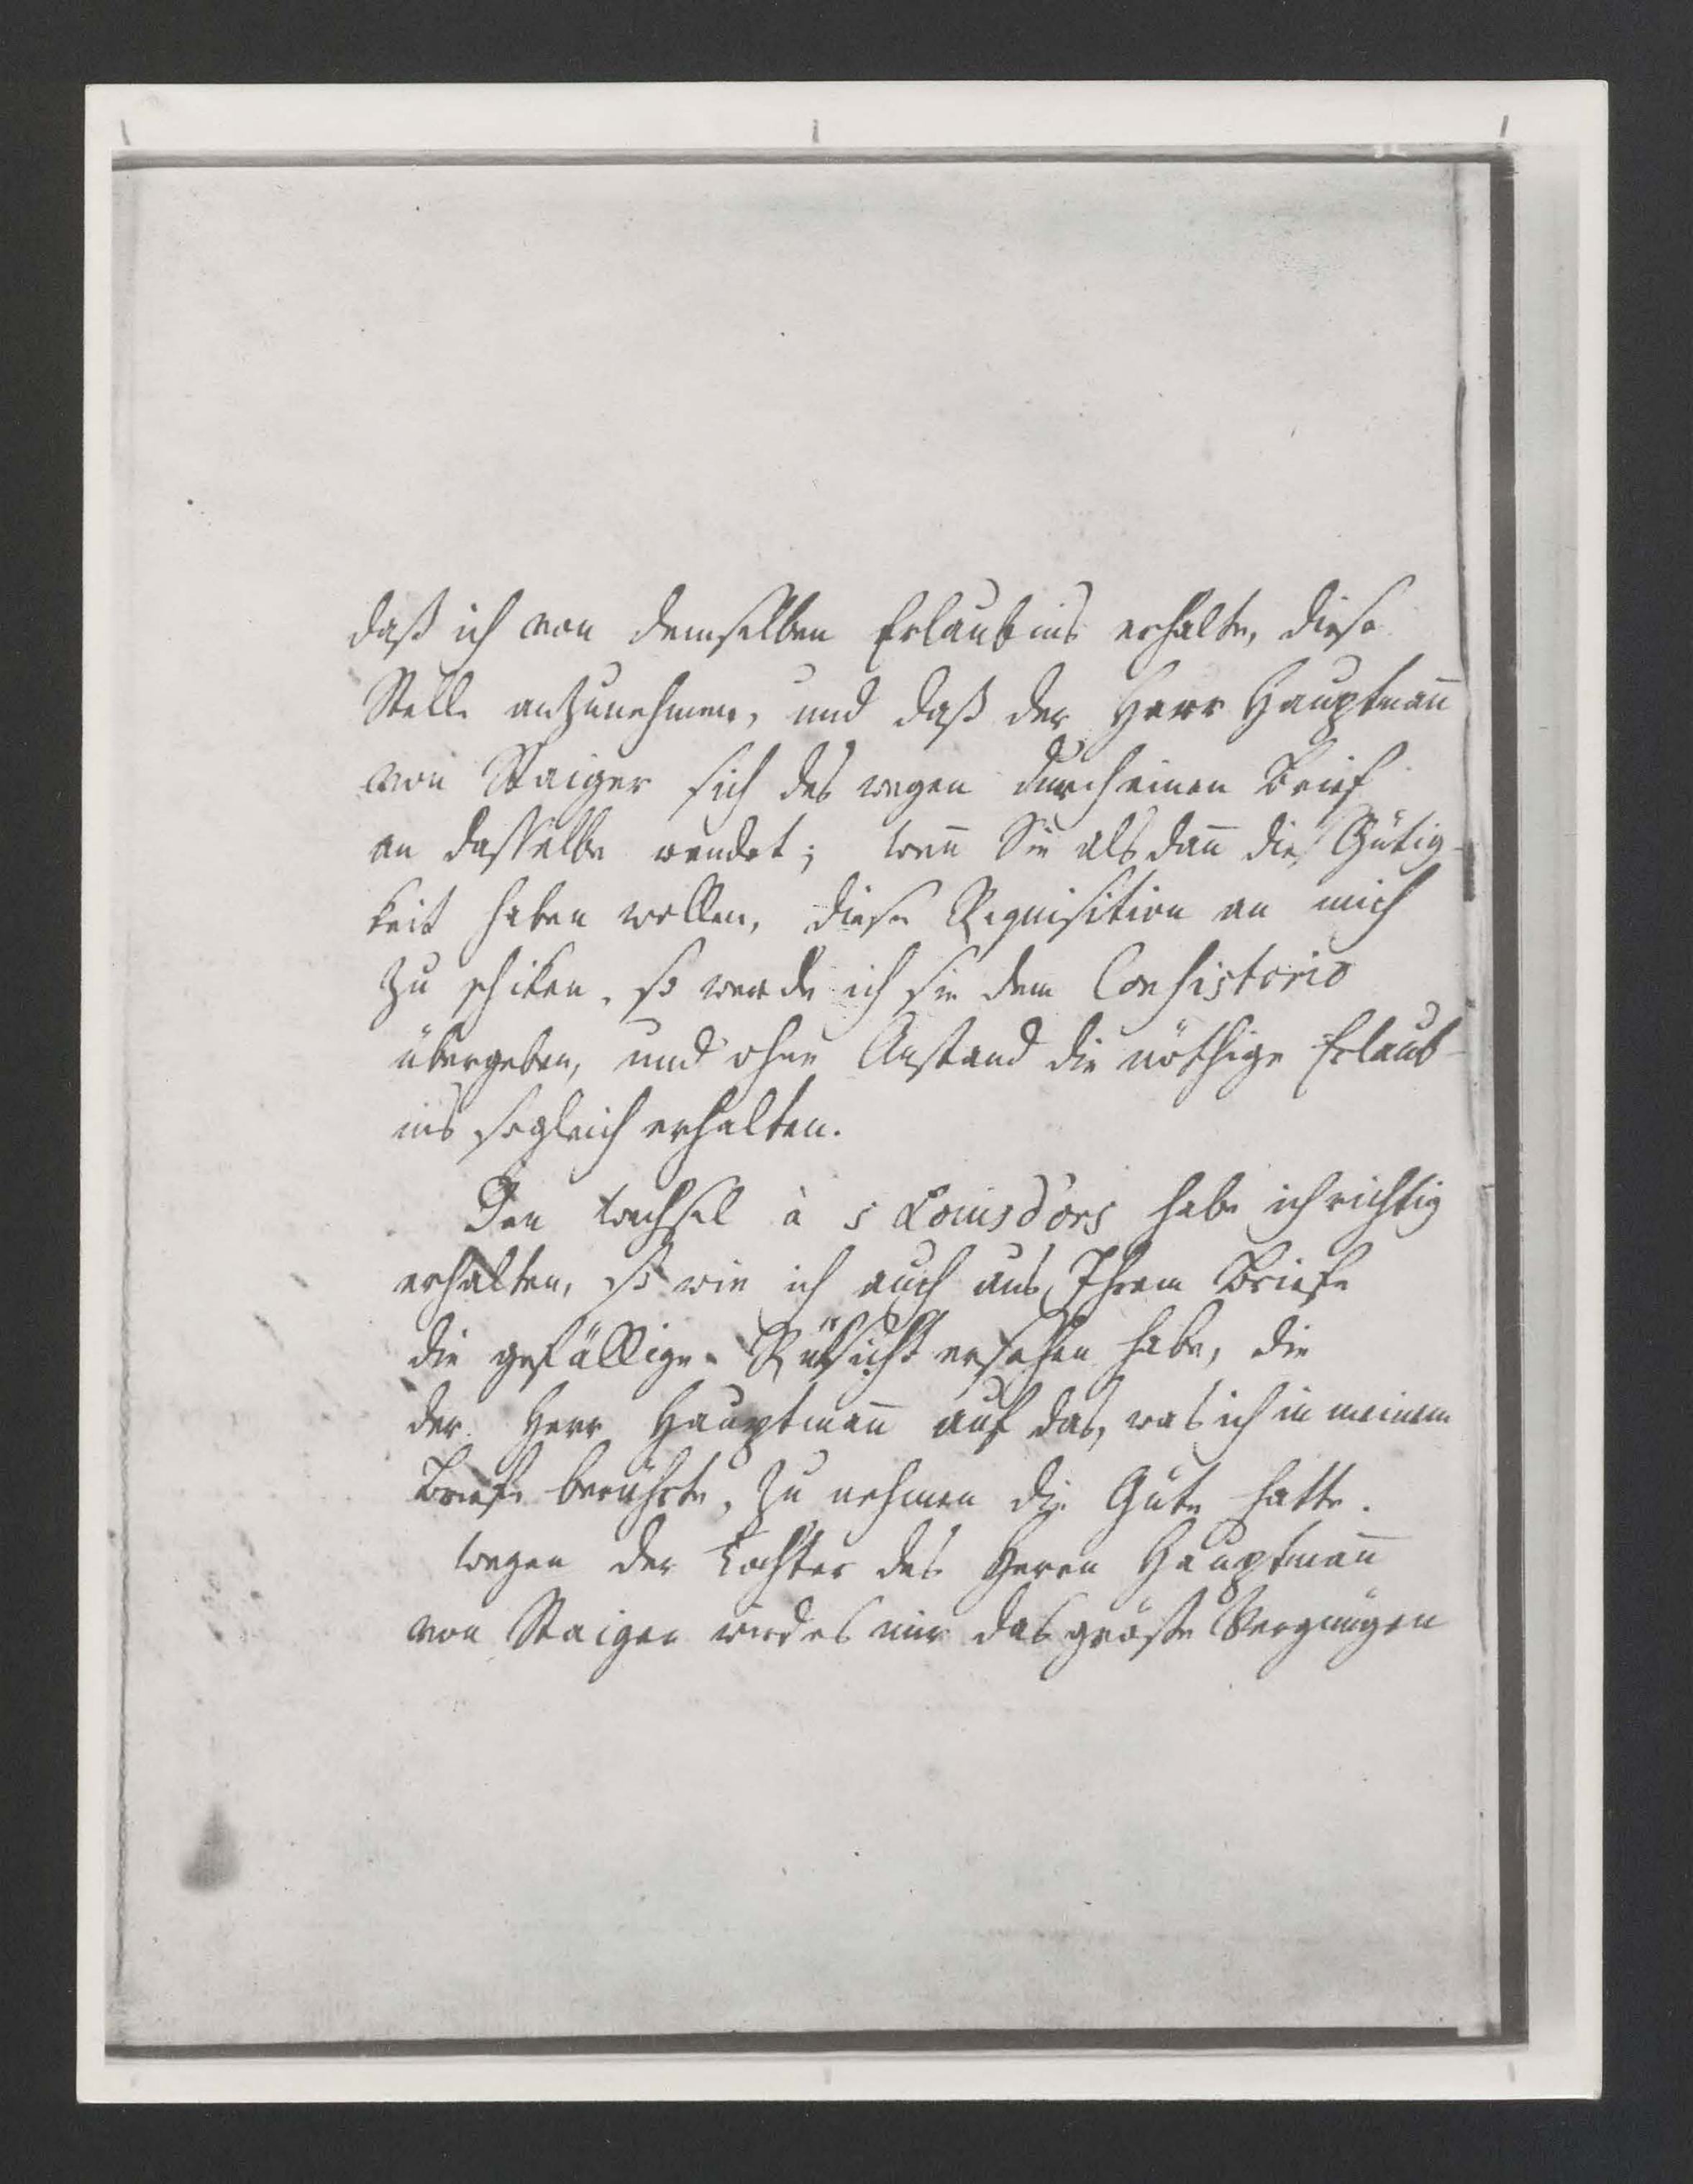 daß ich von demselben Erlaubnis erhalte, diese
Stelle anzunehmen, und daß der Herr Hauptman̄
von Staiger sich des wegen durch einen Brief
an dasselbe wendet; wen̄ Sie alsdan̄ die Gütig-
keit haben wollen, diese Requisition an mich
zu schiken, so werde ich sie dem Consistorio
übergeben, und ohne Anstand die nöthige Erlaub-
nis sogleich erhalten.
Den Wechsel à 5 Louisd'ors habe ich richtig
erhalten, so wie ich auch aus Ihrem Briefe
die gefällige Rüksicht ersehen habe, die
der Herr Hauptman̄ auf das, was ich in meinem
Briefe berührte, zu nehmen die Güte hatte.
Wegen der Tochter des Herrn Hauptman̄
von Staiger wird es mir das gröste Vergnügen